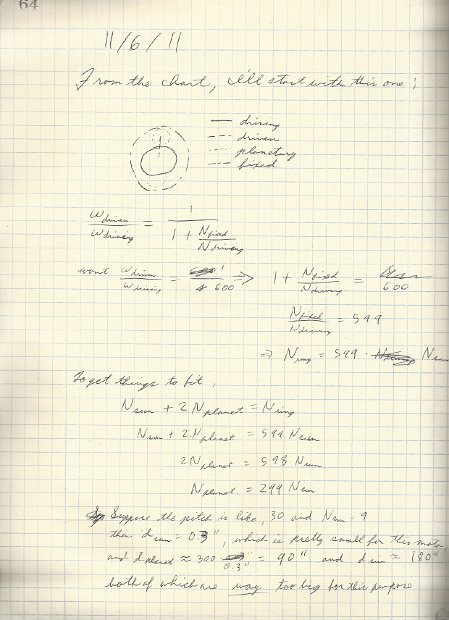 64
11/6/11
From the chart, I'll start with this one:
driving
driven
planetary
fixed
ω driven / ω driving = 1 / (1 + N fixed / N driving)
want ω driven / ω driving = 1 / 600 ⇒ 1 + N fixed / N driving = 600
N fixed / N driving = 599
⇒ N ring = 599 · N sun
To get things to fit,
N sun + 2 N planet = N ring
N sun + 2 N planet = 599 N sun
2 N planet = 598 N sun
N planet = 299 N sun
Suppose the pitch is like, 30 and N sun = 9
then d sun = 0.3", which is pretty small for this motor
and d planet ≈ 300 · 0.3" = 90" and d ≈ 180"
both of which are way too big for this purpose